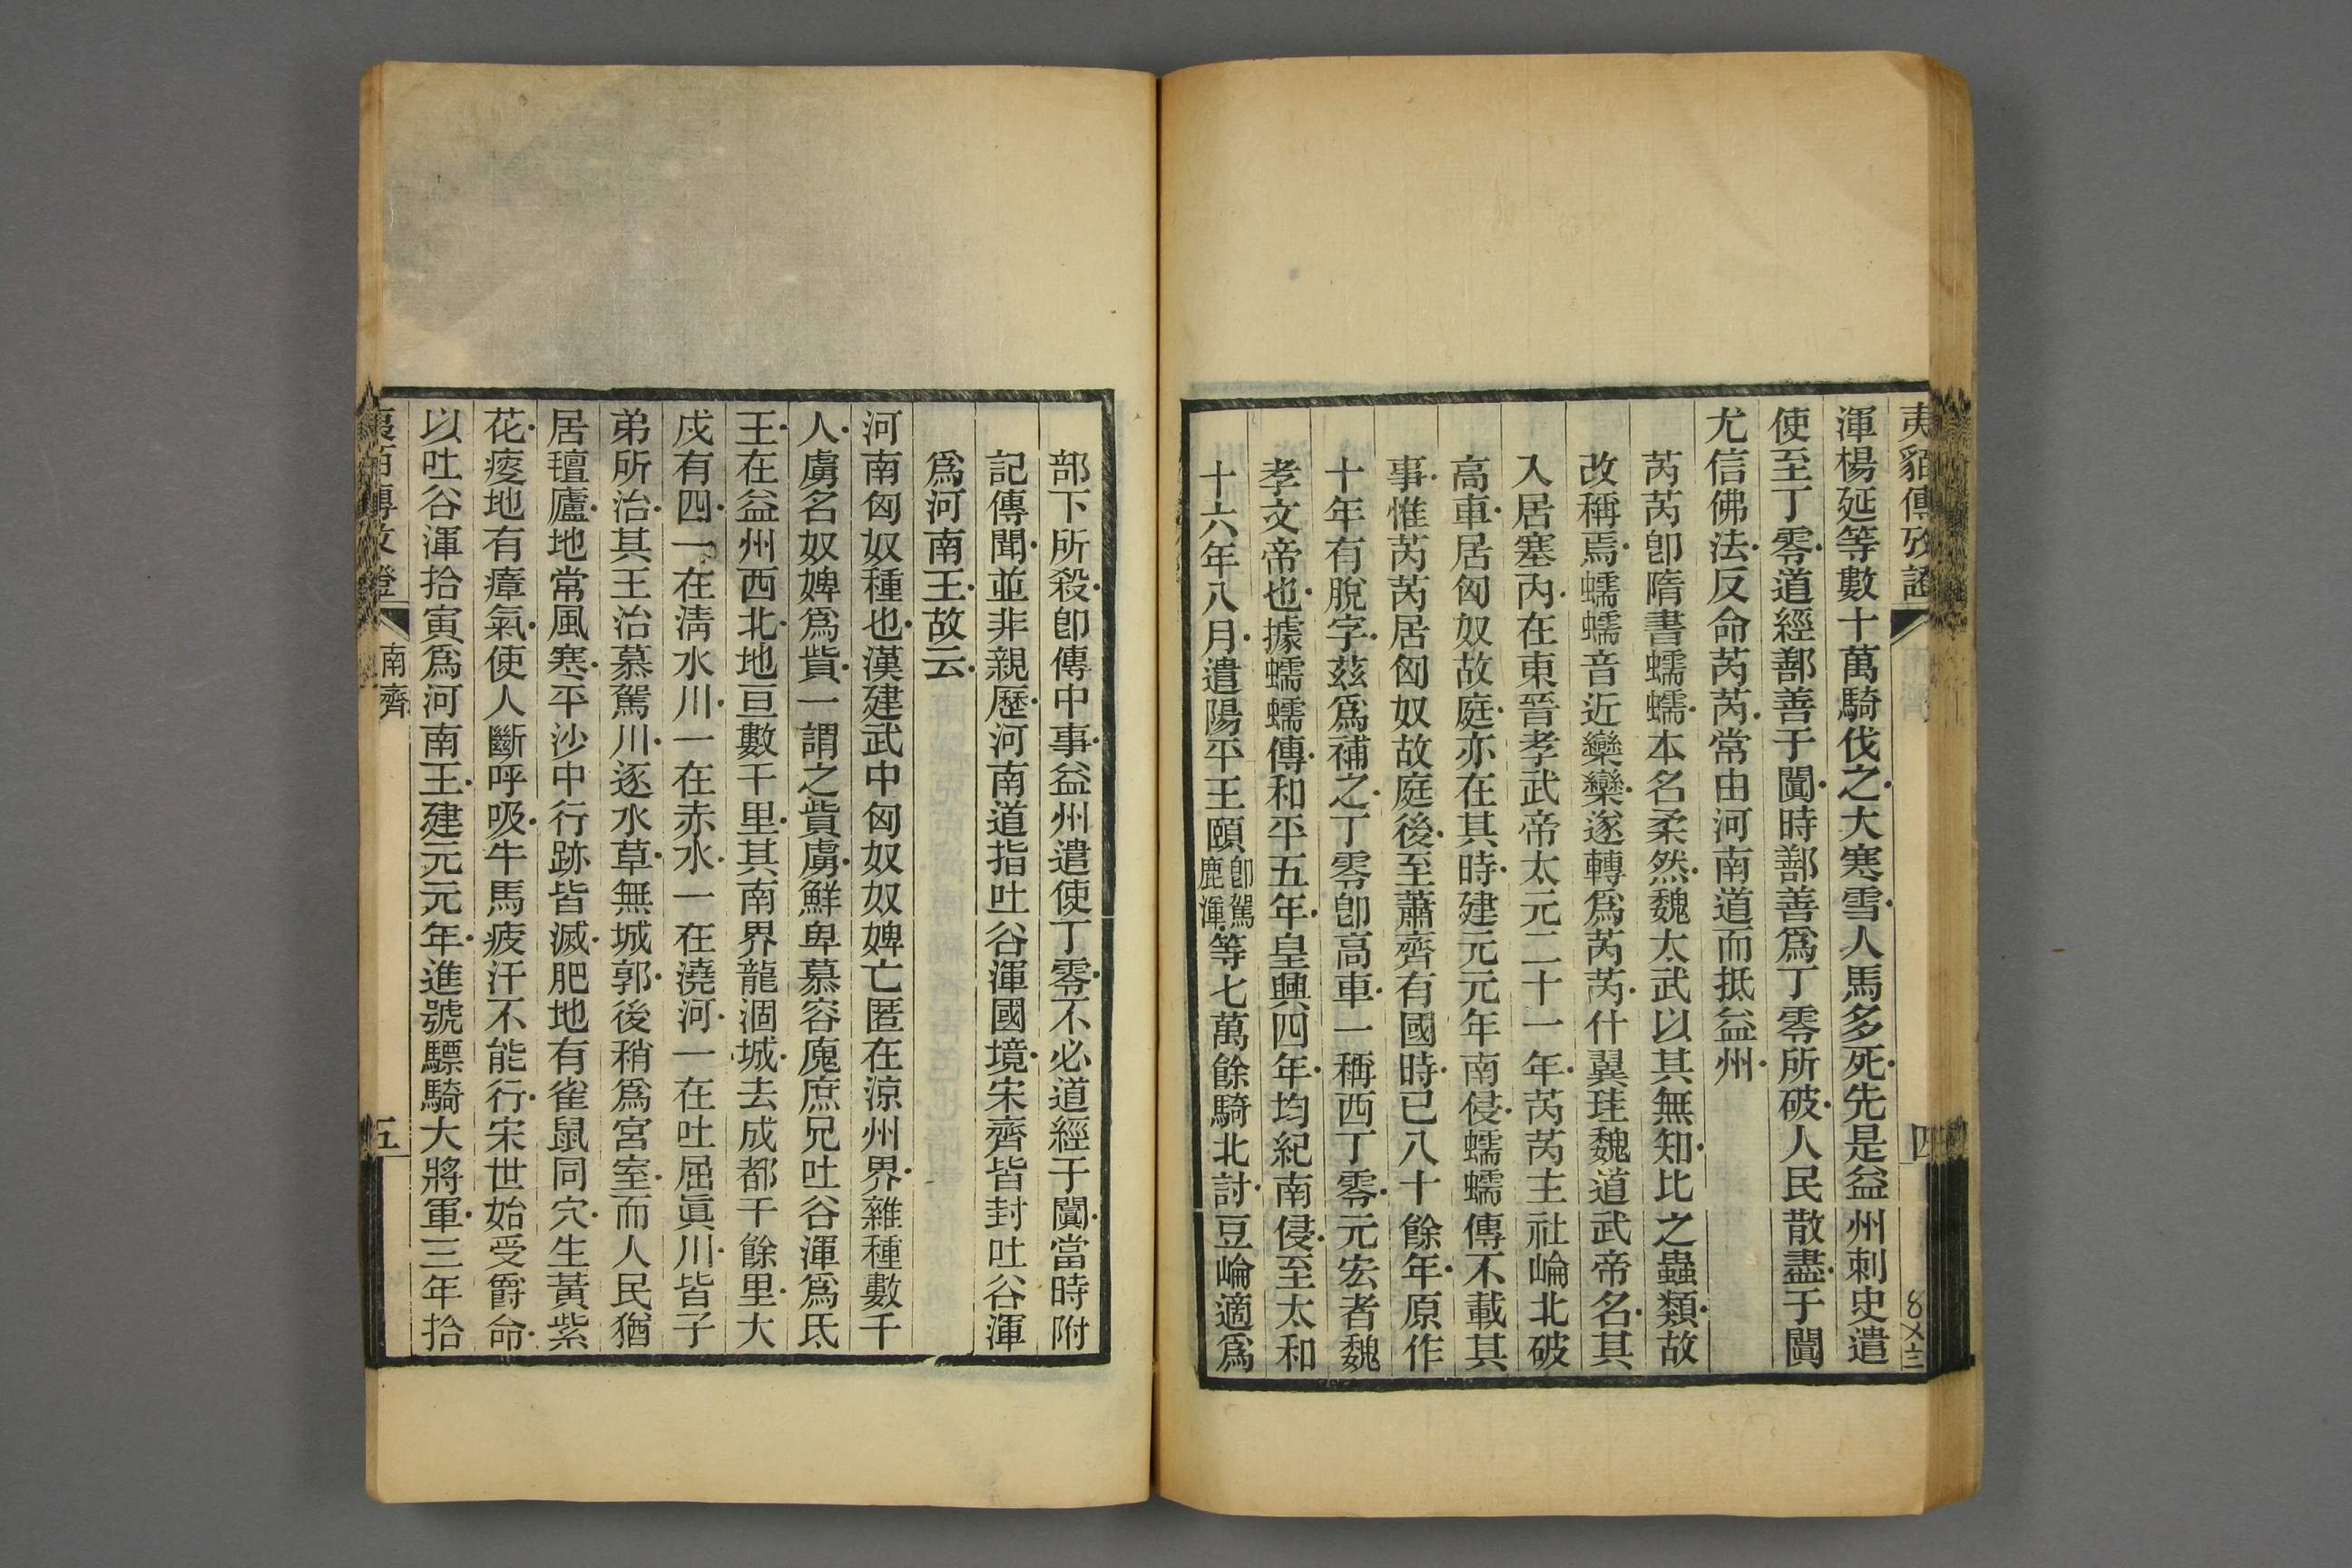 夷貊傳攷證
四
渾楊延等數十萬騎伐之大寒雪人馬多死先是益州刺史遣
使至丁零道經鄯善于闐時鄯善爲丁零所破人民散盡于闐
尤信佛法反命芮芮常由河南道而抵益州
芮芮卽隋書蠕蠕本名柔然魏太武以其無知比之蟲類故
改稱焉蠕蠕音近欒欒遂轉爲芮芮什翼珪魏道武帝名其
入居塞內在東晉孝武帝太元二十一年芮芮主社崘北破
高車居匈奴故庭亦在其時建元元年南侵蠕蠕傳不載其
事惟芮芮居匈奴故庭後至蕭齊有國時已八十餘年原作
十年有脫字茲爲補之丁零卽高車一稱西丁零元宏者魏
孝文帝也據蠕蠕傳和平五年皇興四年均紀南侵至太和
十六年八月遣陽平王頤卽駕鹿渾等七萬餘騎北討豆崘適爲
部下所殺卽傳中事益州遣使丁零不必道經于闐當時附
記傳聞並非親歷河南道指吐谷渾國境宋齊皆封吐谷渾
爲河南王故云
河南匈奴種也漢建武中匈奴奴婢亡匿在涼州界雜種數千
人虜名奴婢爲貲一謂之貲虜鮮卑慕容廆庶兄吐谷渾爲氐
王在益州西北地亘數千里其南界龍涸城去成都千餘里大
戍有四一在淸水川一在赤水一在澆河一在吐屈眞川皆子
弟所治其王治慕駕川逐水草無城郭後稍爲宮室而人民猶
居氊廬地常風寒平沙中行跡皆滅肥地有雀鼠同穴生黃紫
花瘦地有瘴氣使人斷呼吸牛馬疲汗不能行宋世始受爵命
以吐谷渾拾寅爲河南王建元元年進號驃騎大將軍三年拾
夷貊傳攷證
南齊
五